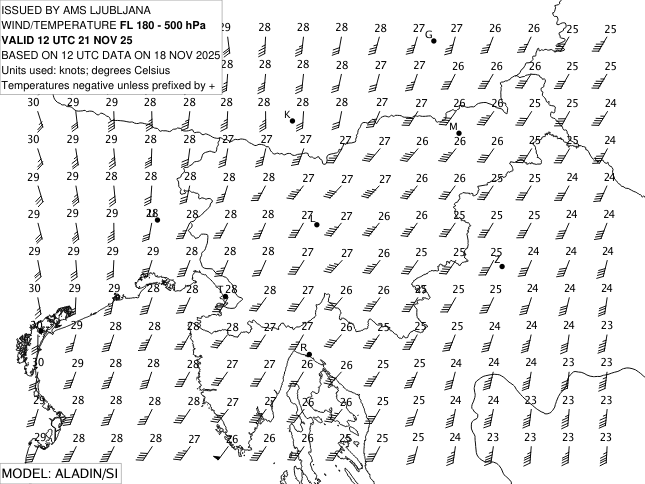 ISSUED BY AMS LJUBLJANA
WIND/TEMPERATURE FL 180 - 500 hPa
VALID 12 UTC 21 NOV 25
BASED ON 12 UTC DATA ON 18 NOV 2025
Units used: knots; degrees Celsius
Temperatures negative unless prefixed by +
29 28 28 28 28 27 27 26 26 25 25
G
28 28 28 28 27 27 26 26 25 25
30 29 29 28 28 28 28 28 28 27 27 26 26 25 25 24
K M
30 29 29 28 28 27 27 27 27 27 26 26 26 25 25 24
29 29 29 28 28 28 28 27 27 26 26 26 25 25 24 24
29 29 29 28 28 28 28 27 27 26 26 25 25 25 24 24
L
29 29 29 28 28 28 28 27 27 26 25 25 25 24 24 24
Z
30 29 29 28 28 28 28 27 26 26 25 25 25 24 24 24
T
30 29 28 28 28 28 27 27 26 25 25 25 24 24 24 23
R
30 29 28 28 28 27 27 26 26 25 25 24 24 24 23 23
29 28 28 28 28 27 27 26 26 25 25 24 24 23 23 23
29 28 28 28 27 26 26 26 25 25 25 24 23 23 23 23
MODEL: ALADIN/SI